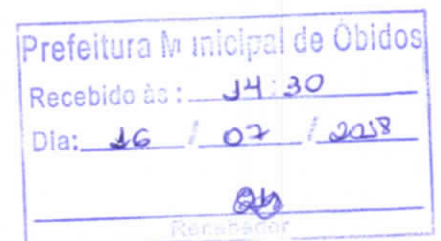 Prefeitura Municipal de Óbidos
Recebido às: 14:30
Dia: 16 / 07 / 2018
Recebedor